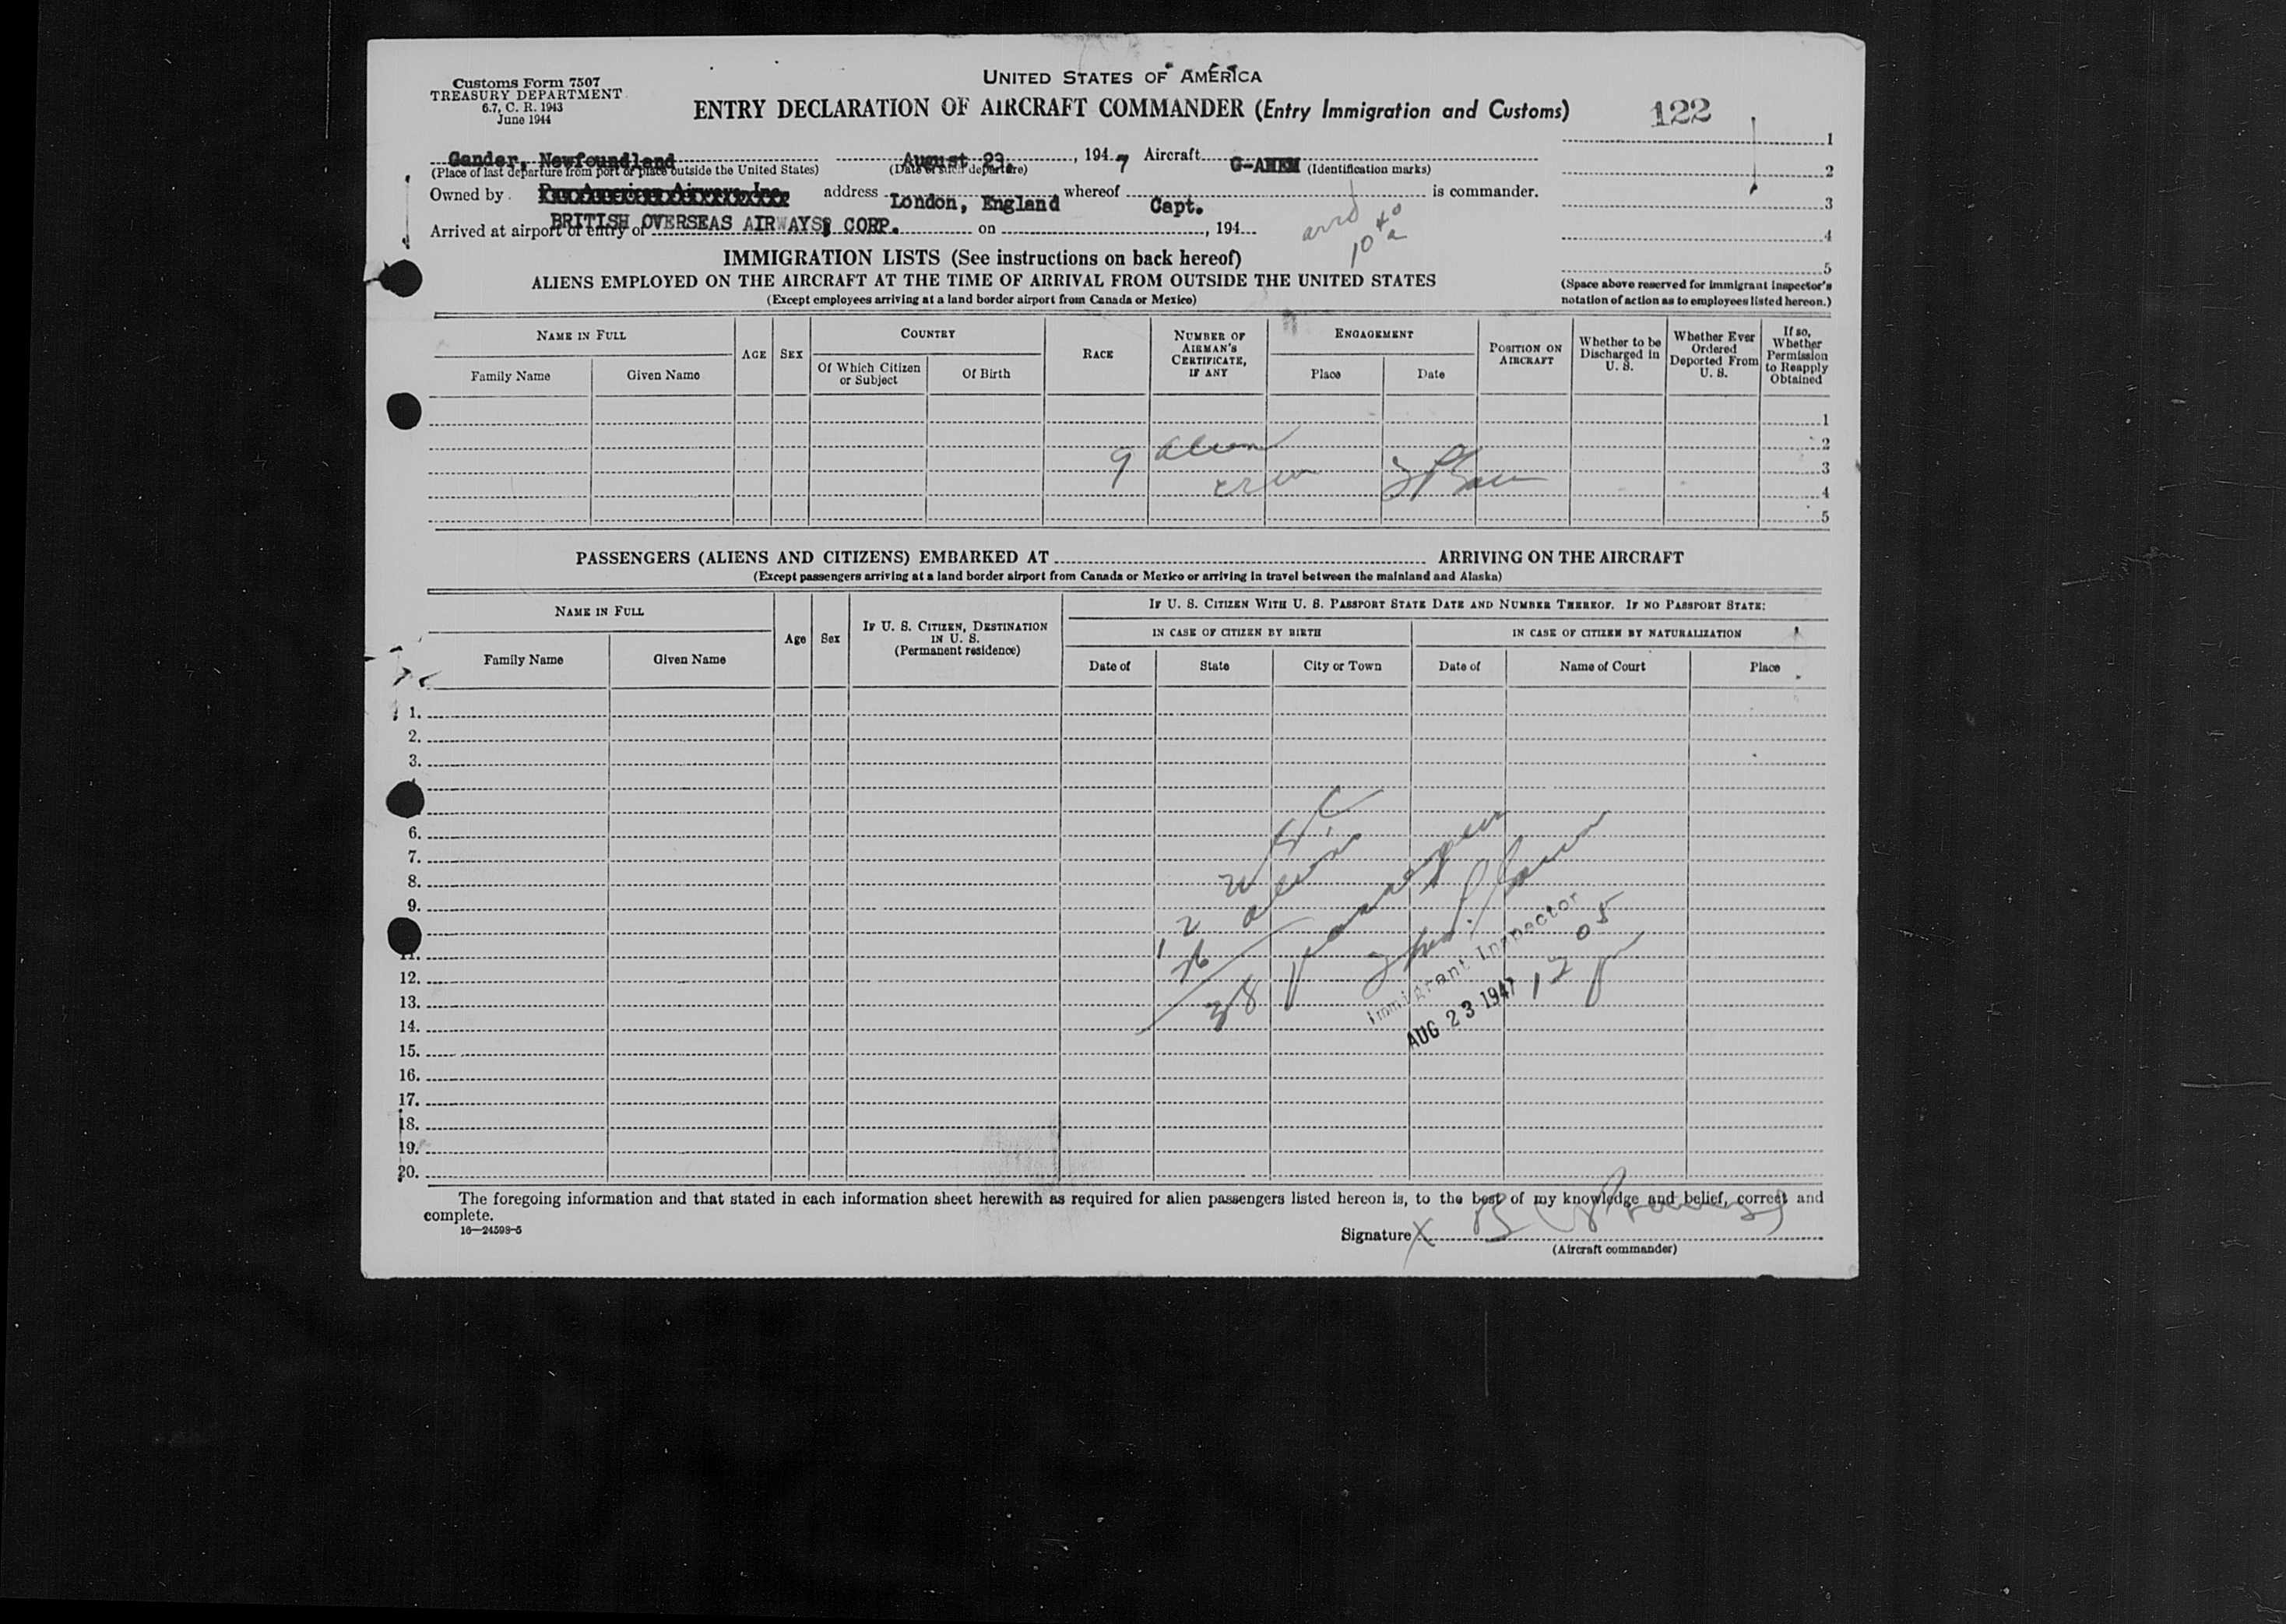 Customs Form 7507
TREASURY DEPARTMENT
6.7, C. R. 1943
June 1944
UNITED STATES OF AMERICA
ENTRY DECLARATION OF AIRCRAFT COMMANDER (Entry Immigration and Customs)
122
Gander, Newfoundland August 23, 1947 Aircraft G-AHEM (Identification marks)
(Place of last departure from port or place outside the United States) (Date of such departure)
Owned by Pan American Airways Inc. address London, England whereof Capt. is commander.
BRITISH OVERSEAS AIRWAYS CORP.
Arrived at airport of entry of on , 194
arrd
10 40 a
1
2
3
4
5
(Space above reserved for immigrant inspector's
notation of action as to employees listed hereon.)
IMMIGRATION LISTS (See instructions on back hereof)
ALIENS EMPLOYED ON THE AIRCRAFT AT THE TIME OF ARRIVAL FROM OUTSIDE THE UNITED STATES
(Except employees arriving at a land border airport from Canada or Mexico)
NAME IN FULL
Family Name
Given Name
AGE
SEX
COUNTRY
Of Which Citizen
or Subject
Of Birth
RACE
NUMBER OF
AIRMAN'S
CERTIFICATE,
IF ANY
ENGAGEMENT
Place
Date
POSITION ON
AIRCRAFT
Whether to be
Discharged in
U. S.
Whether Ever
Ordered
Deported From
U. S.
If so,
Whether
Permission
to Reapply
Obtained
1
2
3
4
5
9 alien
crew
PASSENGERS (ALIENS AND CITIZENS) EMBARKED AT ARRIVING ON THE AIRCRAFT
(Except passengers arriving at a land border airport from Canada or Mexico or arriving in travel between the mainland and Alaska)
NAME IN FULL
Family Name
Given Name
Age
Sex
IF U. S. CITIZEN, DESTINATION
IN U. S.
(Permanent residence)
IF U. S. CITIZEN WITH U. S. PASSPORT STATE DATE AND NUMBER THEREOF. IF NO PASSPORT STATE:
IN CASE OF CITIZEN BY BIRTH
IN CASE OF CITIZEN BY NATURALIZATION
Date of
State
City or Town
Date of
Name of Court
Place
1.
2.
3.
6.
7.
8.
9.
11.
12.
13.
14.
15.
16.
17.
18.
19.
20.
12 U.S.C
26 aliens
38 passengers
Immigrant Inspector
AUG 23 1947
12 05 pm
The foregoing information and that stated in each information sheet herewith as required for alien passengers listed hereon is, to the best of my knowledge and belief, correct and
complete.
16—24598-5
Signature X
(Aircraft commander)